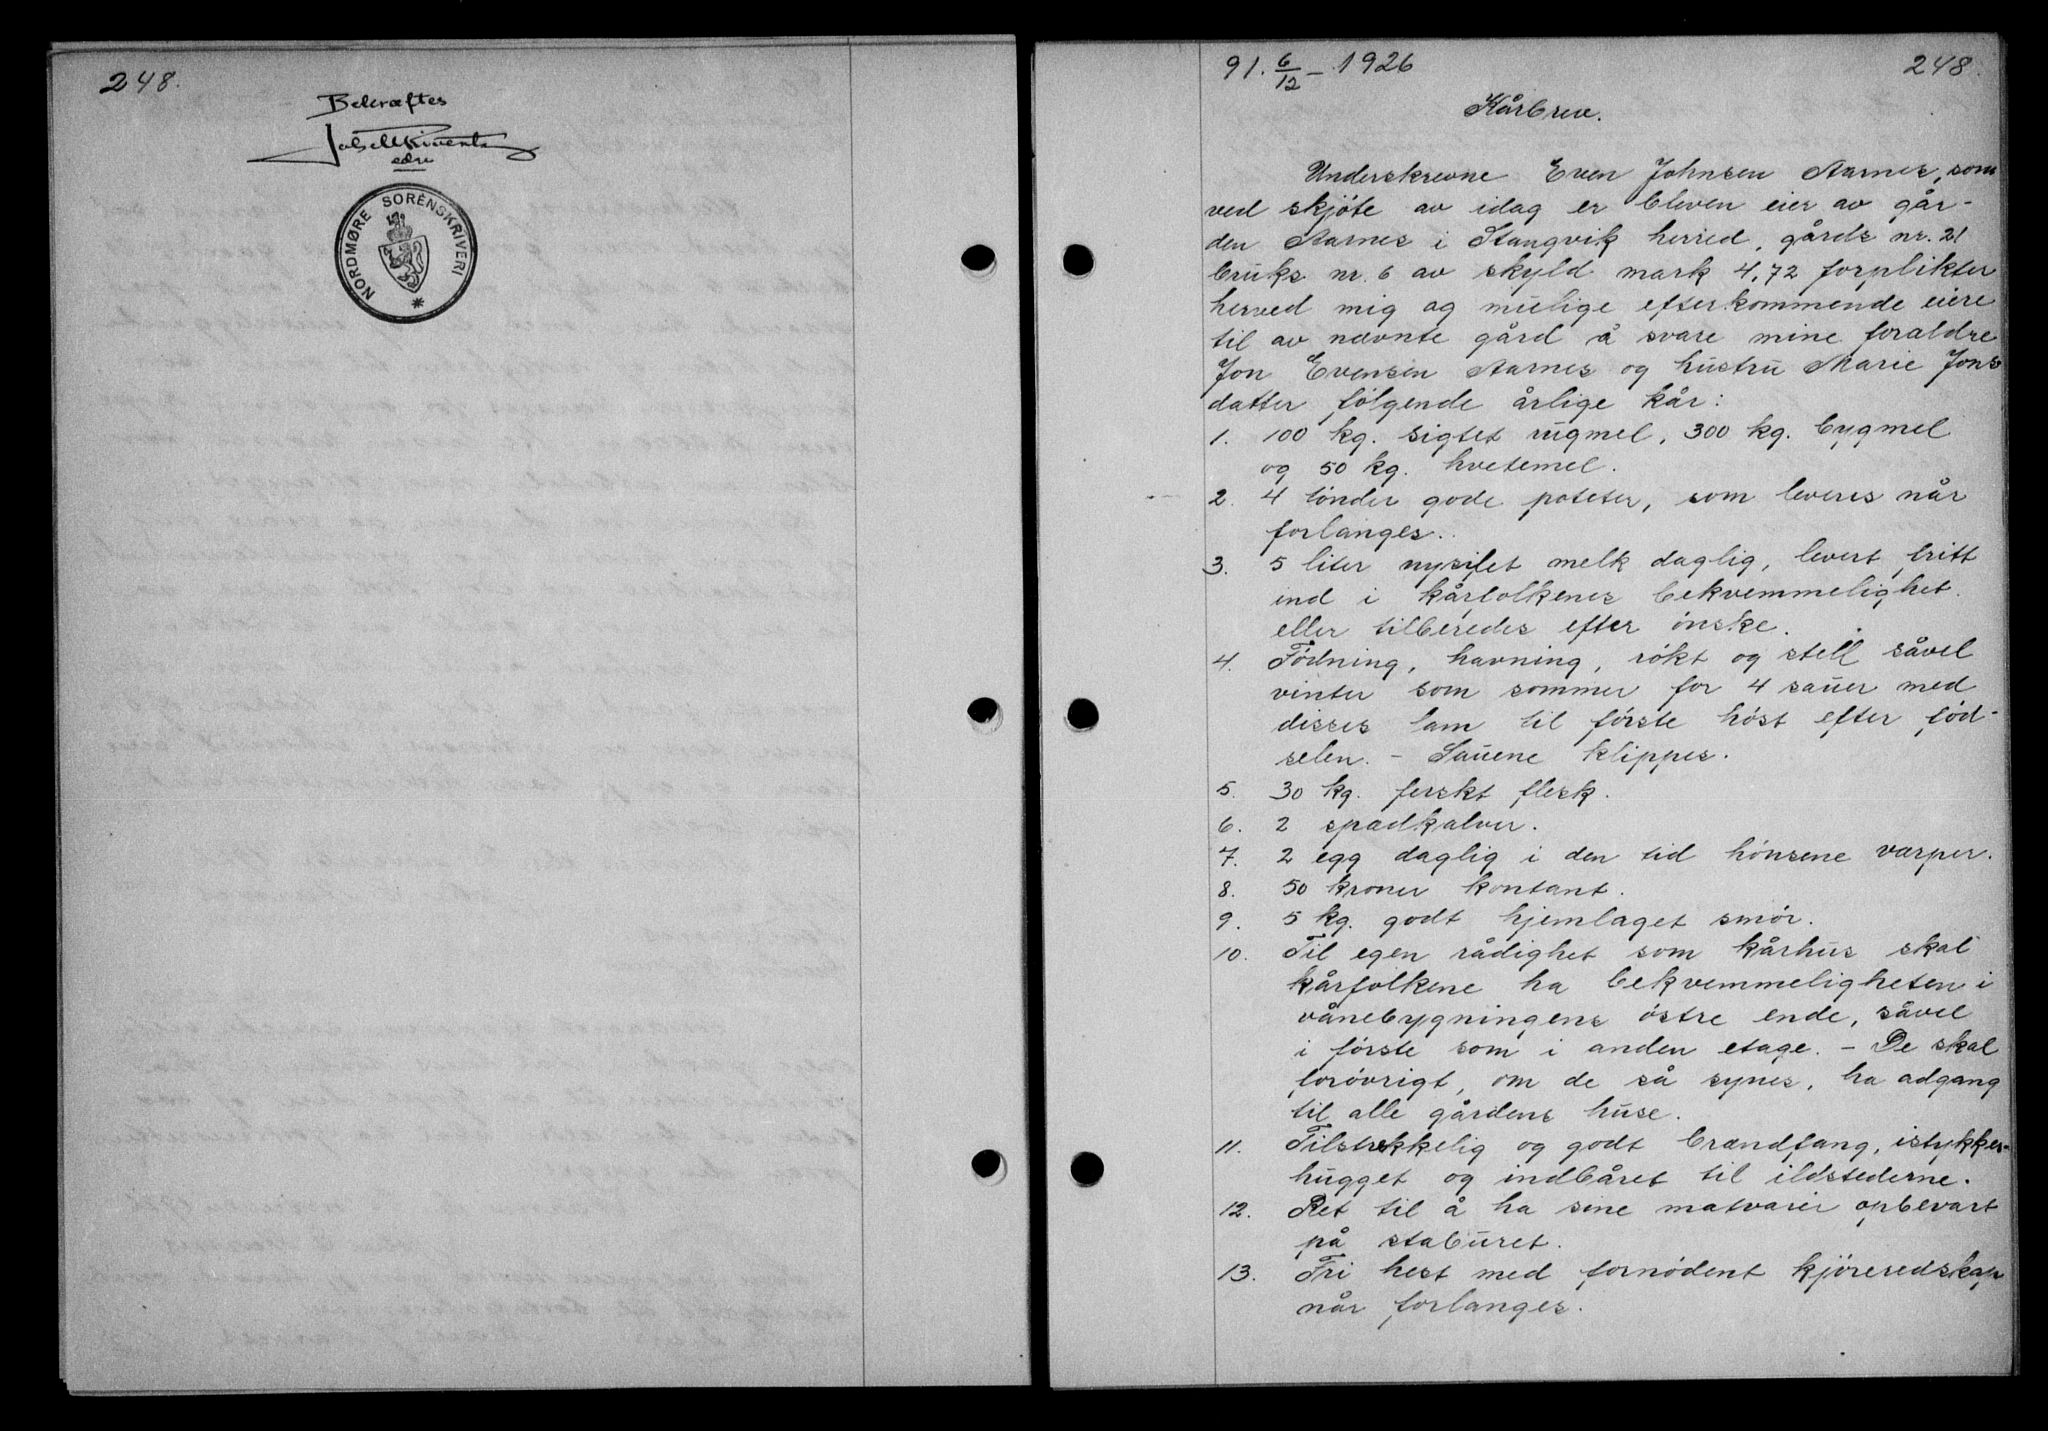 248.
Bekræftes
edru
NORDMØRE SORENSKRIVERI
91. 6/12 - 1926
248.
Kårbrev.
Underskrevne Even Johnsen Aarnes, som
ved skjöte av idag er bleven eier av går-
den Aarnes i Stangvik herred, gårds nr. 21
bruks nr. 6 av skyld mark 4,72 forplikter
herved mig og mulige efterkommende eiere
til av nævnte gård å svare mine foraldre
Jon Evensen Aarnes og hustru Marie Jons
datter fölgende årlige kår:
1. 100 kg. sigtet rugmel, 300 kg. bygmel
og 50 kg. hvetemel.
2. 4 tönder gode poteter, som leveres når
forlanges.
3. 5 liter nysilet melk daglig, levert fritt
ind i kårfolkenes bekvemmelighet
eller tilberedes efter önske.
4. Födning, havning, rökt og stell såvel
vinter som sommer for 4 sauer med
disses lam til förste höst efter föd-
selen. - Sauene klippes.
5. 30 kg. ferskt flesk.
6. 2 spædkalver.
7. 2 egg daglig i den tid hönsene værper.
8. 50 kroner kontant.
9. 5 kg. godt hjemlaget smör.
10. Til egen rådighet som kårhus skal
kårfolkene ha bekvemmeligheten i
vånebygningens östre ende, såvel
i förste som i anden etage. - De skal
forövrigt, om de så synes, ha adgang
til alle gårdens huse.
11. Tilstrekkelig og godt brændfang, istykker-
hugget og indbåret til ildstederne.
12. Ret til å ha sine matvarer opbevart
på staburet.
13. Fri hest med fornödent kjöreredskap
når forlanges.